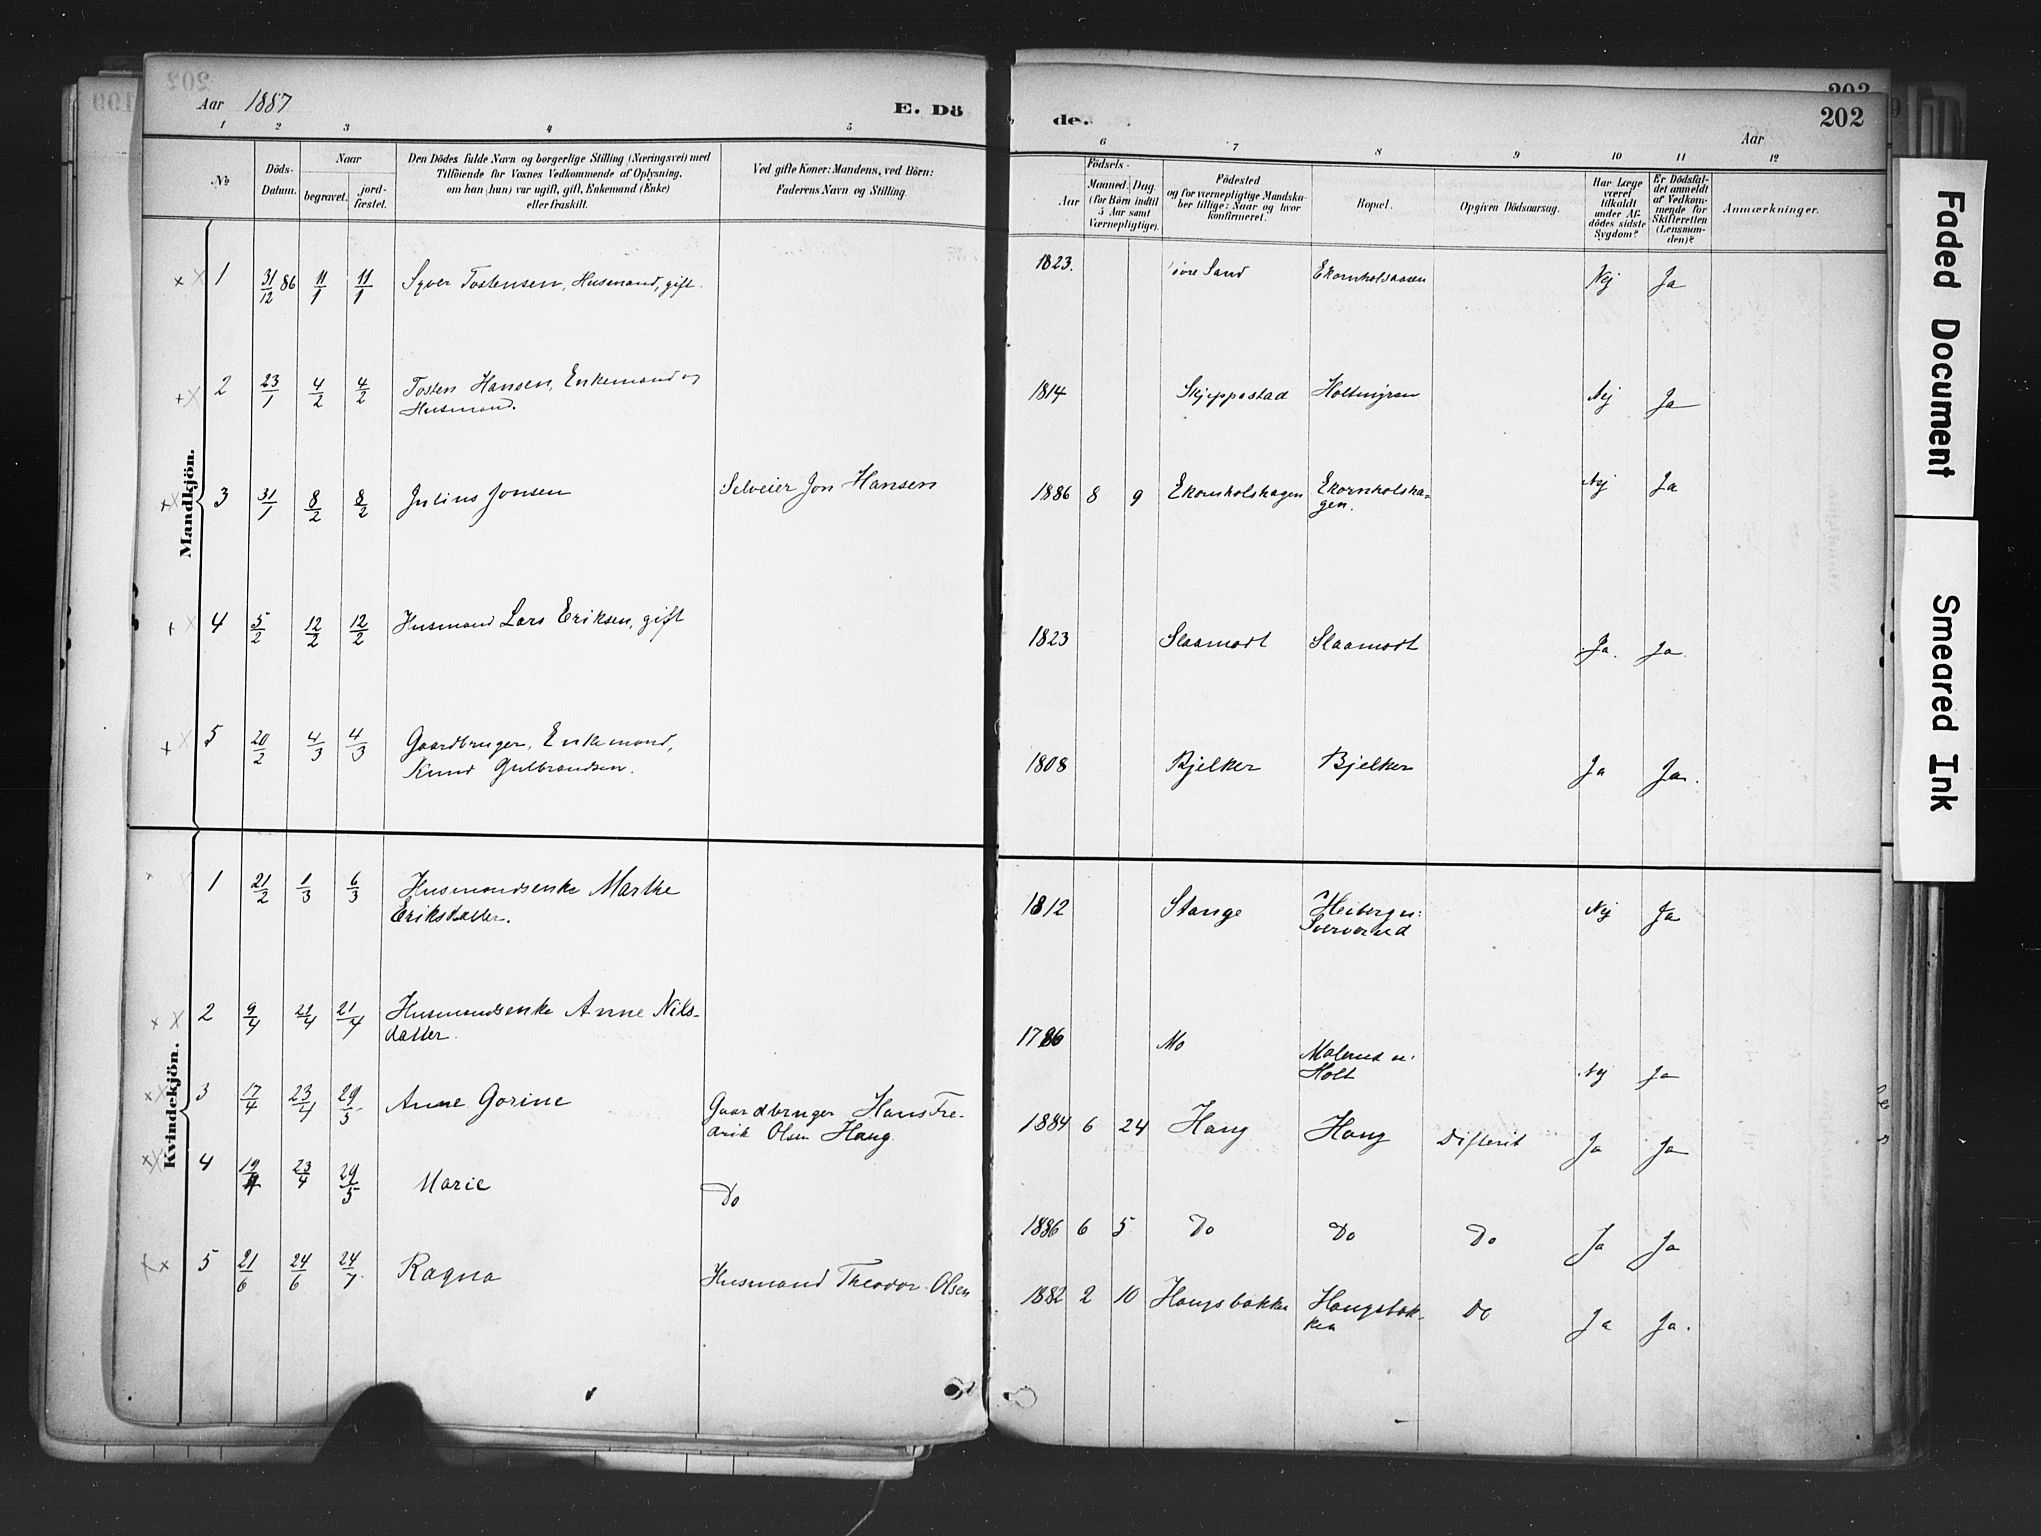 Aar 1887
E. Dö
de.
Aar
202
1 2 3 4 5 6 7 8 9 10 11 12
No
Döds-Datum.
Naar
begravet.
jord-fæstet.
Den Dödes fulde Navn og borgerlige Stilling (Næringsvei) med
Tilföiende for Voxnes Vedkommende af Oplysning,
om han (hun) var ugift, gift, Enkemand (Enke)
eller fraskilt.
Ved gifte Koner: Mandens, ved Börn:
Faderens Navn og Stilling.
Födsels-
Aar
Maaned. Dag
(for Börn indtil
5 Aar samt
Værnepligtige).
Födested
og for værnepligtige Mandska-
ber tillige: Naar og hvor
konfirmeret.
Bopæl.
Opgiven Dödsaarsag.
Har Læge
været
tilkaldt
under Af-
dödes sidste
Sygdom?
Er Dödsfal-
det anmeldt
af Vedkom-
mende for
Skifteretten
(Lensman-
den)?
Anmærkninger.
Mandkjön.
1 31/12 86 11/1 11/1 Syver Tostensen, Husmand, gift. 1823. Sand Ekornholsaasen Nej Ja
2 23/1 4/2 4/2 Tosten Hansen, Enkemand og
Husmand. 1814 Skjeppestad Holtmyren Nej Ja
3 31/1 8/2 8/2 Julius Jonsen Selveier Jon Hansen 1886 8 9 Ekornholshagen Ekornholsha-
gen. Nej Ja
4 5/2 12/2 12/2 Husmand Lars Eriksen, gift 1823 Slaamodt Slaamodt Ja. Ja
5 20/2 4/3 4/3 Gaardbruger, Enkemand,
Knud Gulbrandsen. 1808 Bjelker Bjelker Ja Ja.
Kvindekjön.
1 21/2 1/3 6/3 Husmandsenke Marthe
Eriksdatter. 1812 Stange Nej Ja
2 9/4 21/4 21/4 Husmandsenke Anne Nils-
datter. 1786 Mo
Holt Nej Ja
3 17/4 23/4 29/5 Anne Gorine Gaardbruger Hans Fre-
drik Olsen Haug. 1884 6 24 Haug Haug Difterit Ja Ja
4 19/4 23/4 29/5 Marie Do 1886 6 5 Do Do Do Ja Ja
5 21/6 24/6 24/7 Ragna Husmand Theodor Olsen 1882 2 10 Haugsbakken Haugsbak-
ken Do Ja Ja.
Faded Document
Smeared Ink